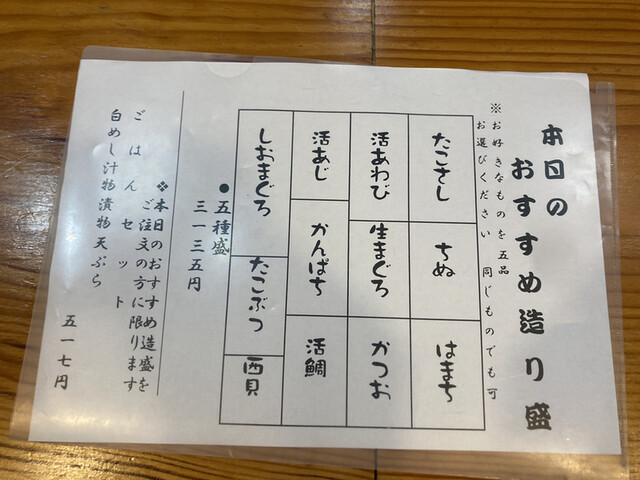 本日の
おすすめ造り盛
※お好きなものを五品
お選びください 同じものでも可
たこさし
ちぬ
はまち
活あわび
生まぐろ
かつお
活あじ
かんぱち
活鯛
しおまぐろ
たこぶつ
西貝
●五種盛
三一三五円
❖本日のおすすめ造盛を
ご注文の方に限ります
ごはんセット
白めし汁物漬物天ぷら
五一七円